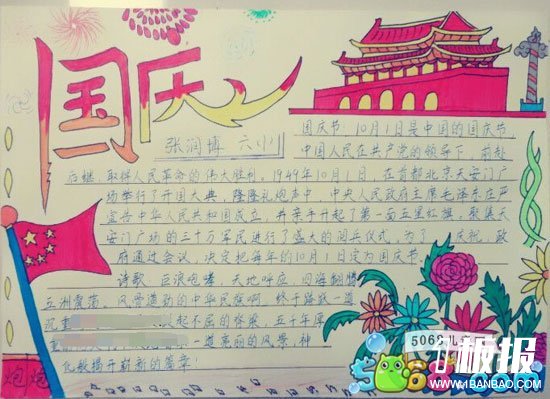 国庆
张润博 六小
国庆节:10月1日是中国的国庆节
中国人民在共产党的领导下,前赴
后继,取得人民革命的伟大胜利。1949年10月1日,在首都北京天安门广
场举行了开国大典,隆隆礼炮声中,中央人民政府主席毛泽东在严
宣告中华人民共和国成立,并亲手升起了第一面五星红旗,聚集天
安门广场的三十万军民进行了盛大的阅兵仪式,为了 庆祝,政
府通过会议,决定把每年的10月1日定为国庆节
诗歌 巨浪咆哮,天地呼应,四海翻腾
五洲震荡,风骨遒劲的中华民族啊,终于
沉重 起不屈的脊梁,五千年厚
一道亮丽的风景,神
化敬揭开崭新的篇章!
炮 炮
5068儿
1板报
WWW.1BANBAO.COM